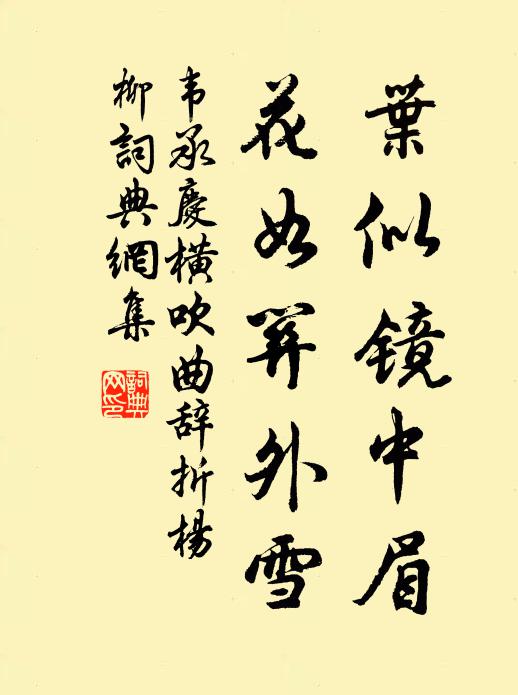 葉似镜中眉
花如關外雪
韦承慶橫吹曲辞折楊
柳詞典網集
詞典
网印